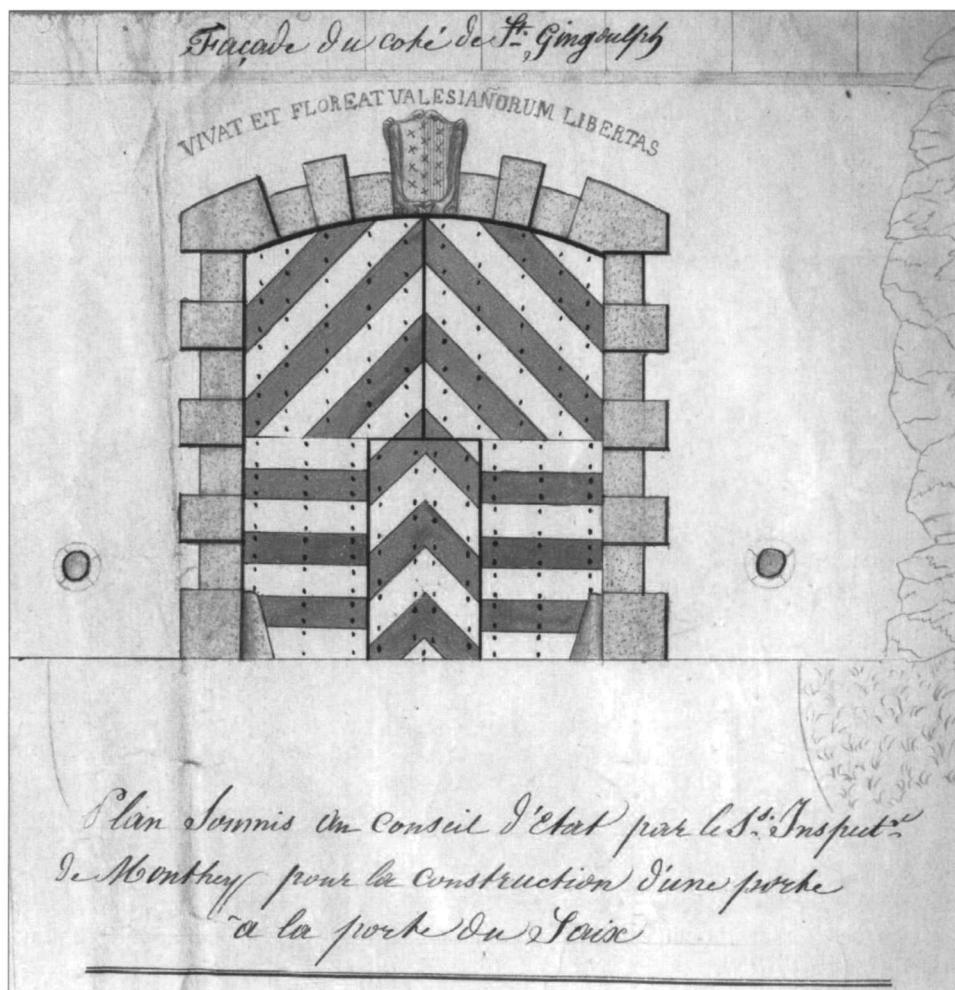 Façade du coté de St. Gingoulph
VIVAT ET FLOREAT VALESIANORUM LIBERTAS
Plan Soumis au conseil d'Etat par le Ss. Inspect.r
de Monthey pour la construction d'une porte
à la porte du Saix